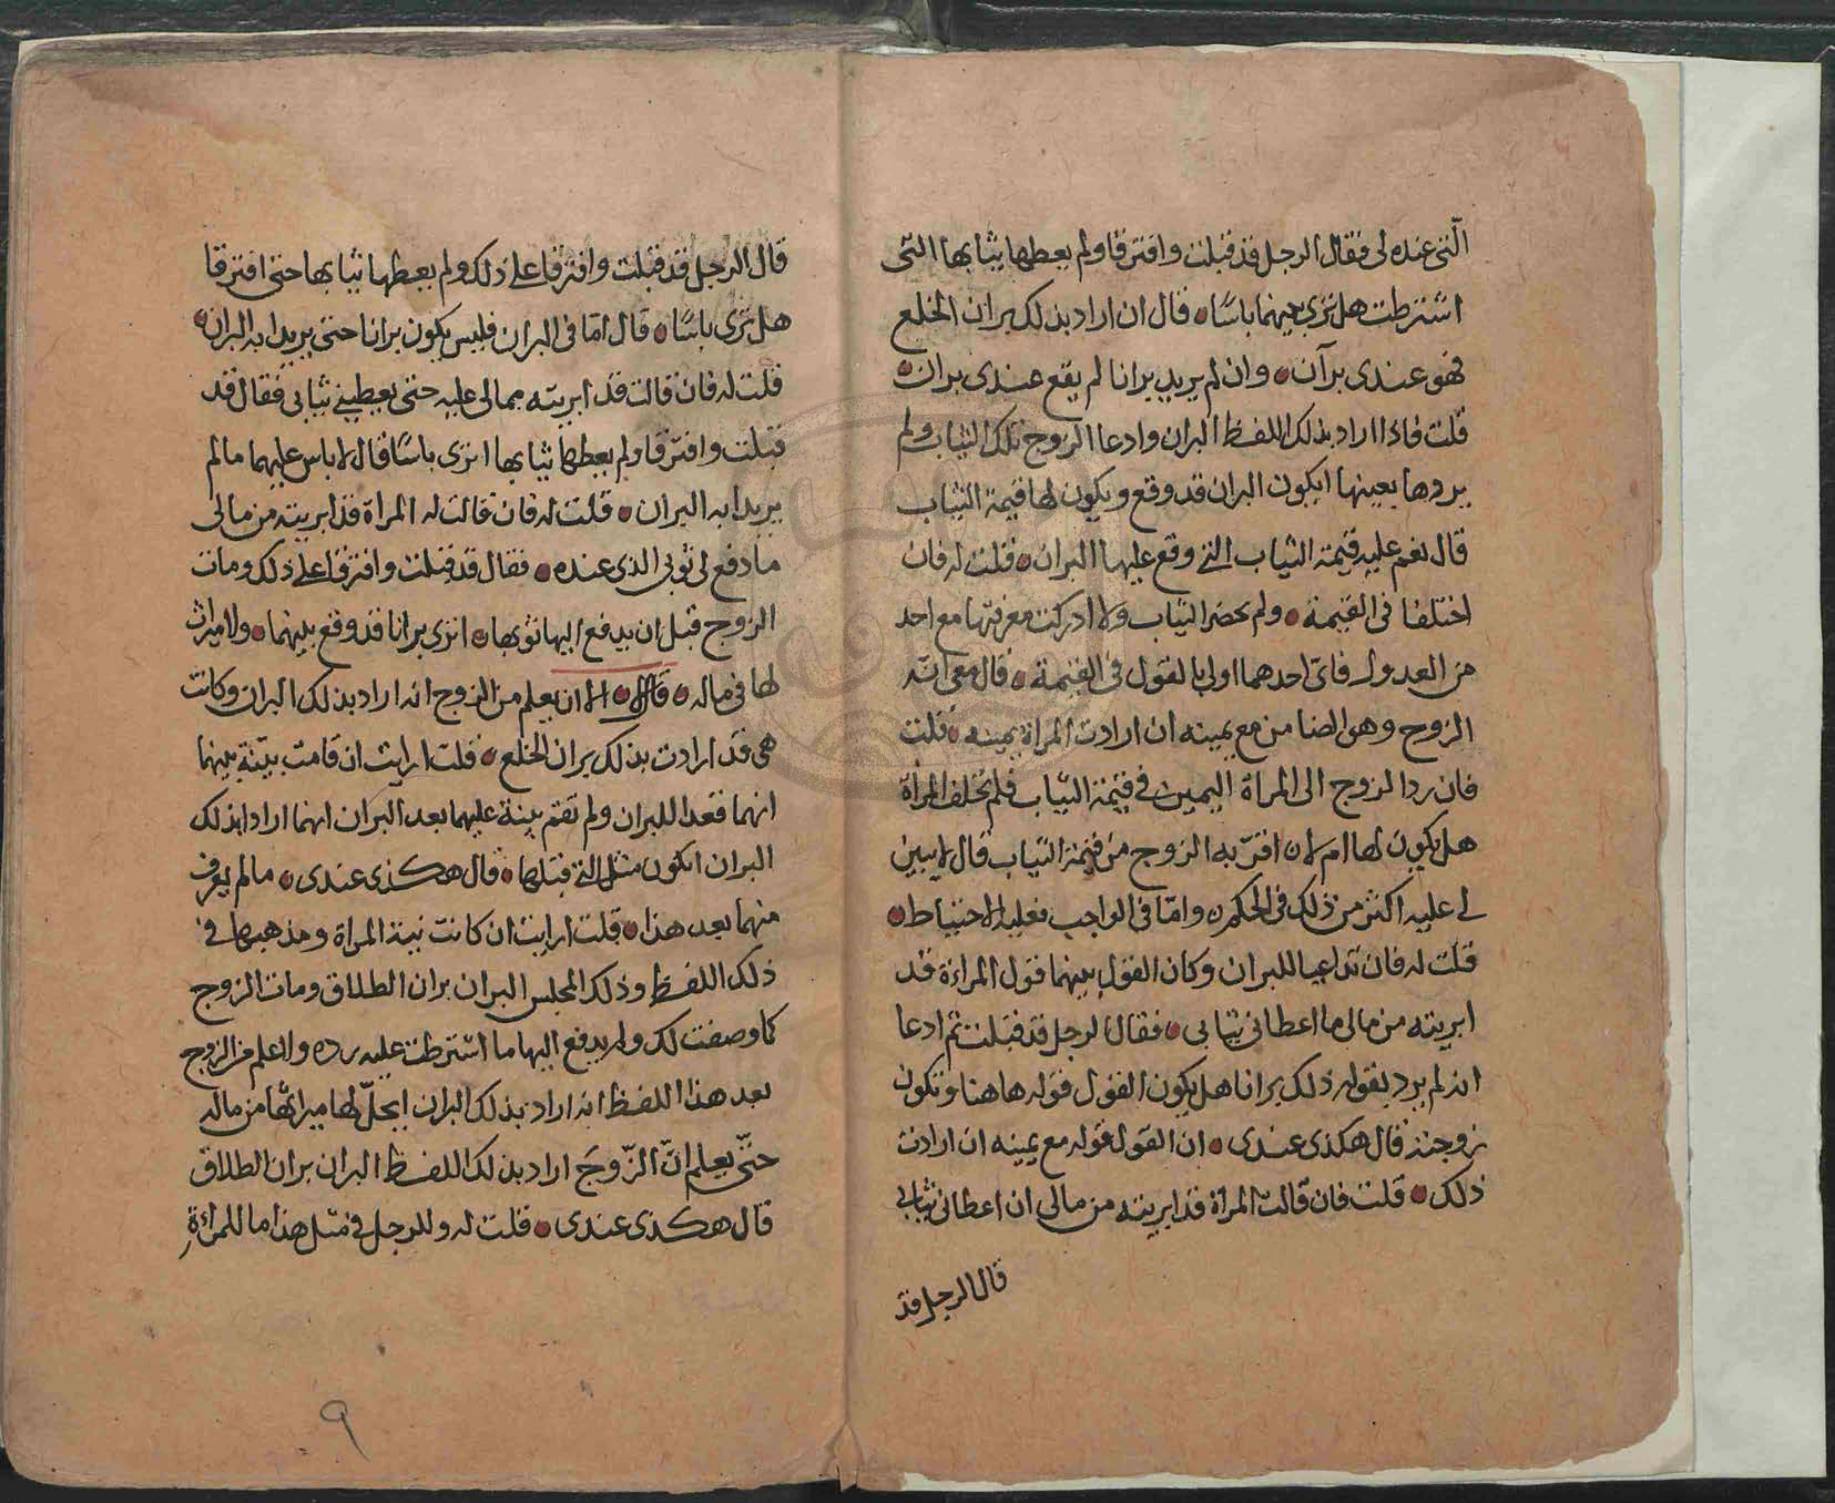 الّتي عنده لى فقال الرجل قد قبلت وافترقا ولم يعطها ثيابها التى
اشترطت هل ترى بينهما باسًا ٥ قال ان اراد بذلك بران الخلع
فهو عندى برآن ٥ وان لم يريد برانا لم يقع عندى بران ٥
قلت فاذا اراد بذلك اللفظ البران وادعا الزوج تلك الثياب ولم
يردها بعينها ايكون البران قد وقع ويكون لها قيمة الثياب
قال نعم عليه قيمة الثياب التي وقع عليها البران ٥ قلت له فان
اختلفا فى القيمة ٥ ولم يحضر الثياب ولا ادركت معرفتها مع احد
من العدول فاىّ احدهما اولى بالقول فى القيمة ٥ قال معى انّه
الزوج وهو الضامن مع يمينه ان ارادت المراة يمينه ٥ قلت
فان رد الزوج الى المراة اليمين في قيمة الثياب فلم تحلف المراة
هل يكون لها ام لا ان اقرّ به الزوج من قيمة الثياب قال لا يبين
لي عليه اكثر من ذلك فى الحكم ٥ وامّا فى الواجب فعليه الاحتياط ٥
قلت له فان تداعيا للبران وكان القول بينهما قول المراءة قد
ابريته من مالى ما اعطانى ثيابى ٥ فقال الرجل قد قبلت ثم ادعا
انه لم يرد بقوله ذلك برانا هل يكون القول قوله هاهنا وتكون
زوجته قال هكذى عندى ٥ ان القول قوله مع يمينه ان ارادت
ذلك ٥ قلت فان قالت المراة قد ابريته من مالى ان اعطانى ثيابى
قال الرجل قد
قال الرجل قد قبلت وافترقا على ذلك ولم يعطها ثيابها حتى افترقا
هل ترى باسًا ٥ قال امّا فى البران فليس يكون برانا حتى يريدا به البران ٥
قلت له فان قالت قد ابريته مما لى عليه حتى يعطيني ثيابى فقال قد
قبلت وافترقا ولم يعطها ثيابها اترى باسًا قال لا باس عليهما ما لم
يريدا به البران ٥ قلت له فان قالت له المراة قد ابريته من مالى
ما دفع لى ثوبى الذى عنده ٥ فقال قد قبلت وافترقا على ذلك ومات
الزوج قبل ان يدفع اليها ثوبها ٥ اترى برانا قد وقع بينهما ٥ ولا ميراث
لها فى ماله ٥ قال ٥ الا ان يعلم من الزوج انه اراد بذلك البران وكانت
هى قد ارادت بذلك بران الخلع ٥ قلت ارايت ان قامت بيّنة بينهما
انهما قعدا للبران ولم تقم بينة عليهما بعد البران انهما ارادا بذلك
البران ايكون مثل التي قبلها ٥ قال هكذى عندى ٥ ما لم يعرف
منهما بعد هذا ٥ قلت ارايت ان كانت نية المراة ومذهبها في
ذلك اللفظ وذلك المجلس البران بران الطلاق ومات الزوج
كما وصفت لك ولم يدفع اليها ما اشترطت عليه رده ولا علم من الزوج
بعد هذا اللفظ انه اراد بذلك البران ايحلّ لها ميراثها من ماله
حتّى يعلم انّ الزّوجَ اراد بذلك اللفظ البران بران الطلاق
قال هكذى عندى ٥ قلت له وللرجل في مثل هذا ما للمراءةِ
٩